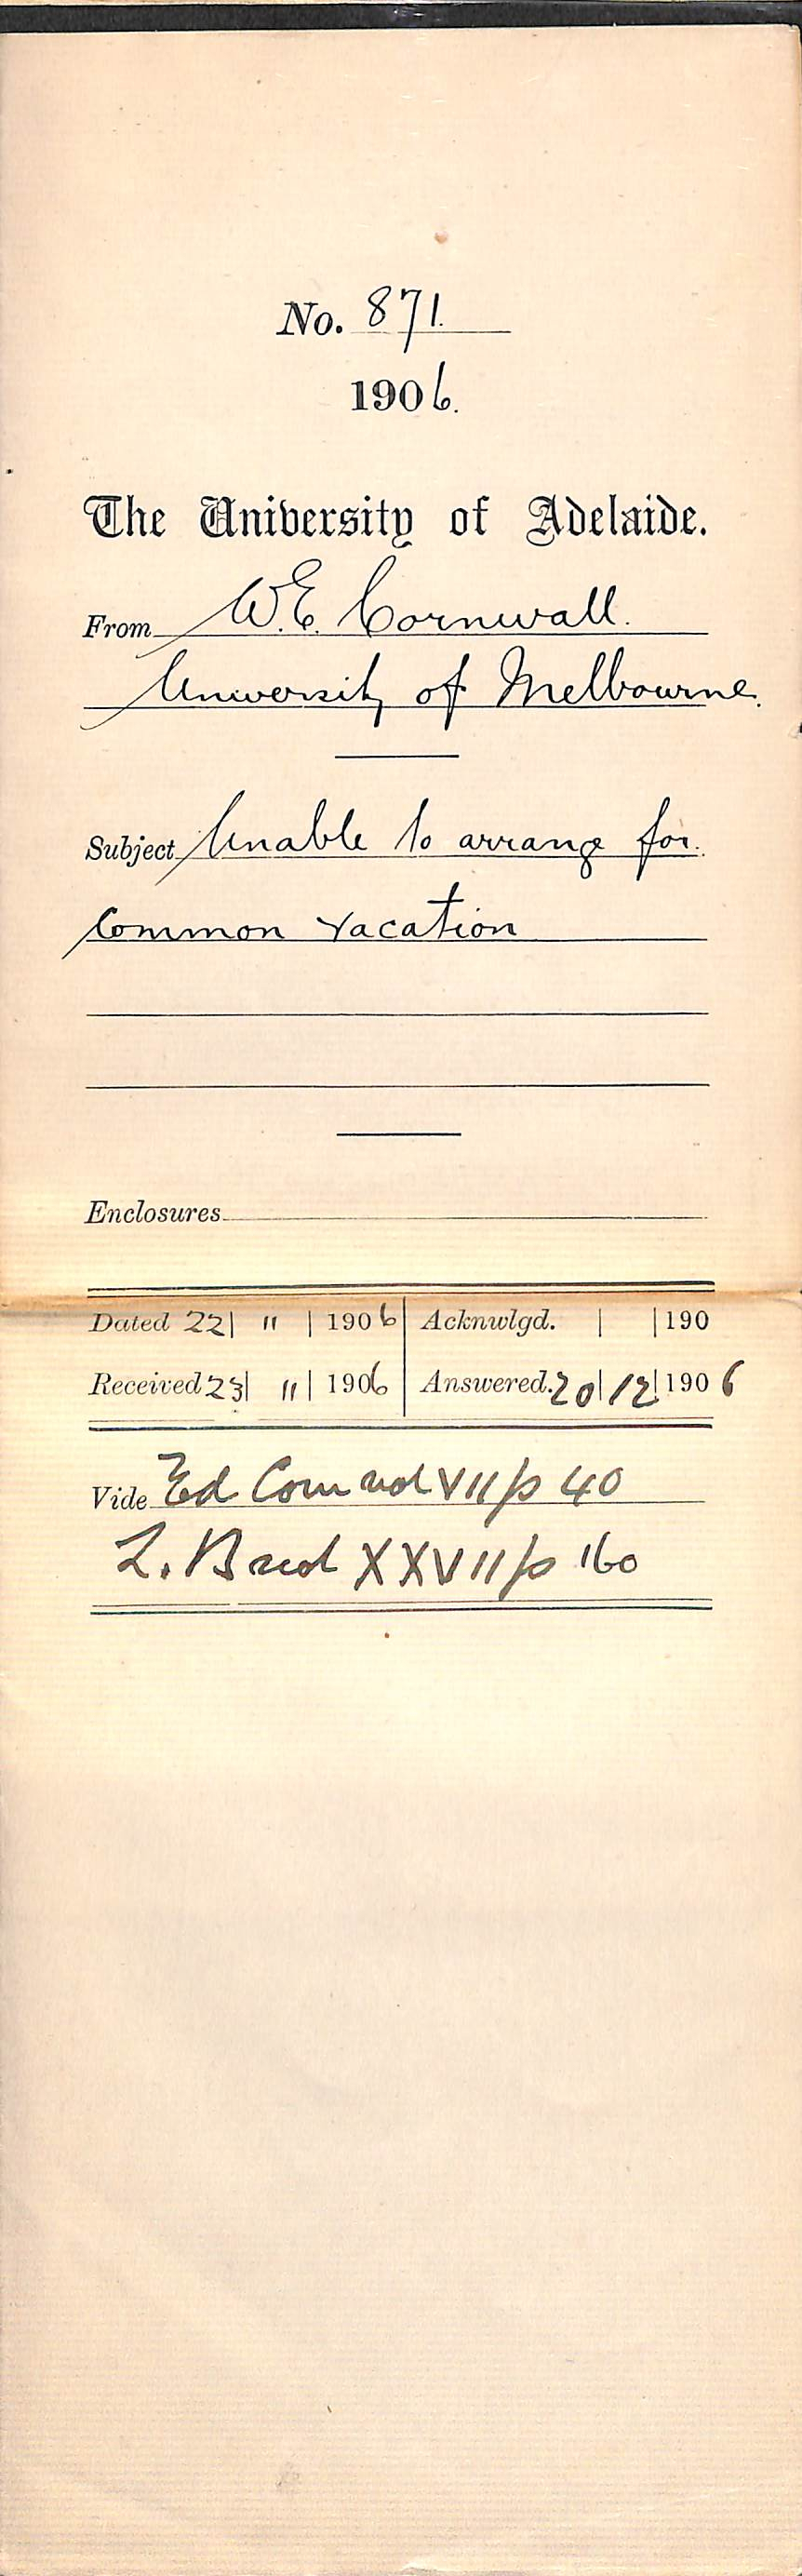 No. 871.
1906.
The University of Adelaide.
From W.E. Cornwall.
University of Melbourne.
Subject Unable to arrange for.
Common Vacation
Enclosures
Dated 22| 11 | 1906 | Acknwlgd. | | 190
Received 23| 11 | 1906 | Answered. 20| 12| 1906
Vide Ed Com vol VII p 40
L. B vol XXVII p 160